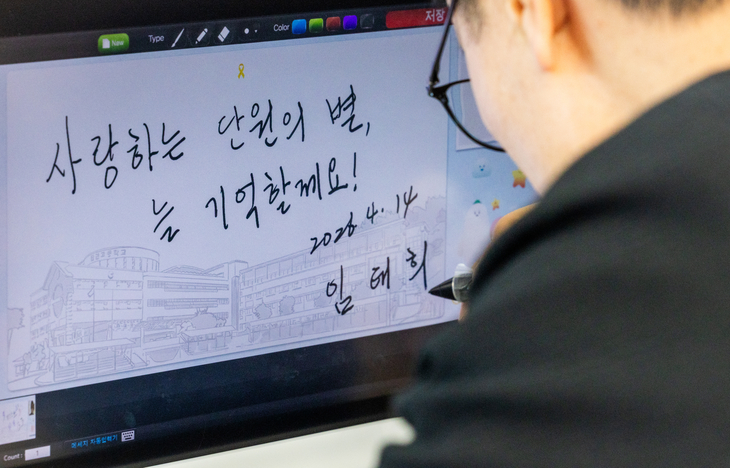 New Type Color 저장
사랑하는 단원의 별,
늘 기억할께요!
2026.4.14
임태희
메세지 자동입력기
Count : 1